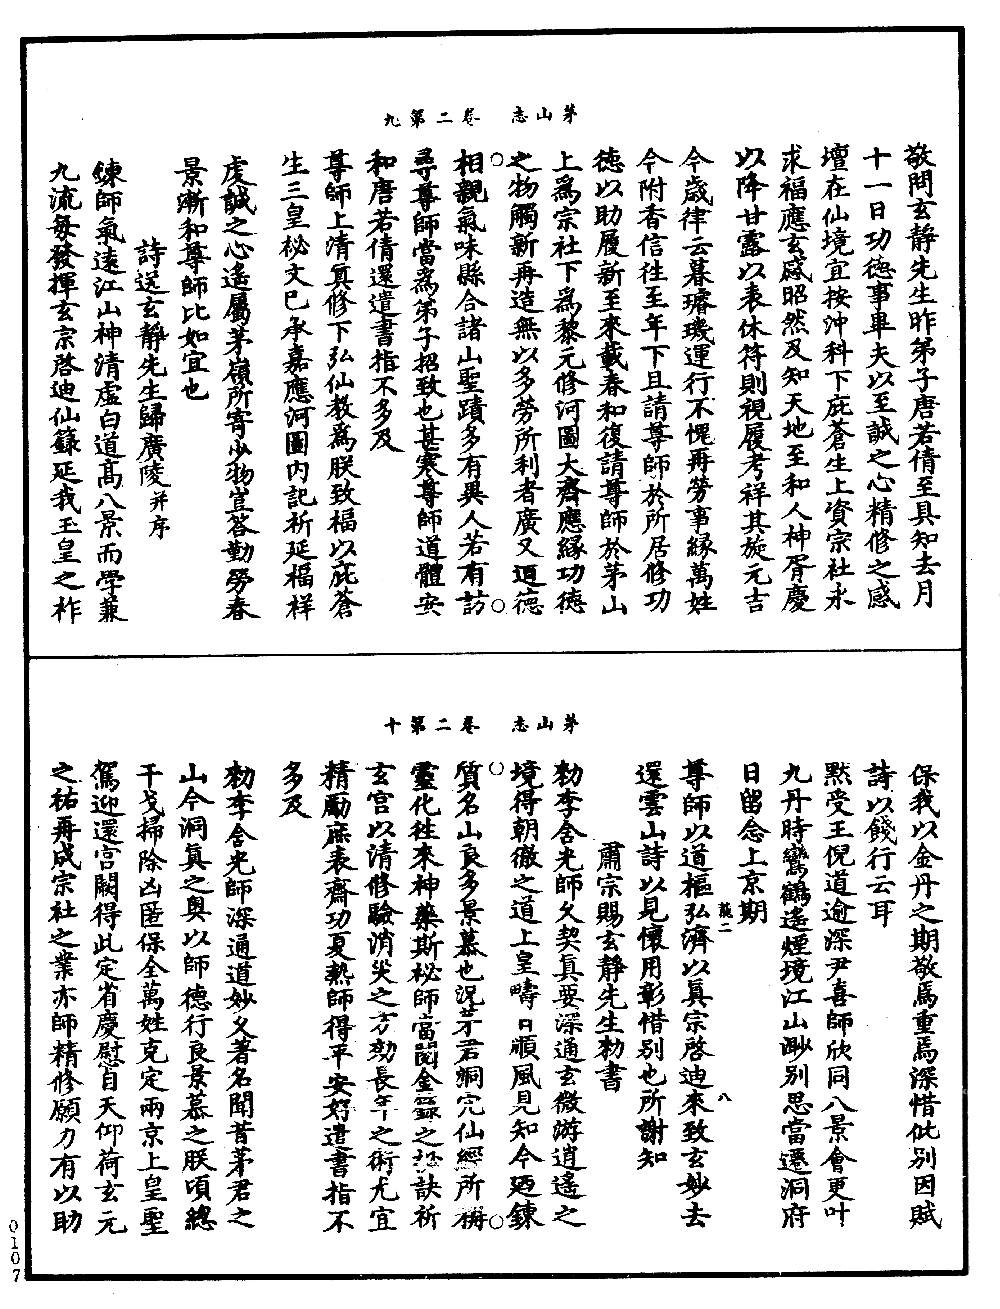 茅山志 卷二第九
敬問玄靜先生昨弟子唐若倩至具知去月
十一日功德事畢夫以至誠之心精修之感
壇在仙境宜按沖科下庇蒼生上資宗社永
求福應玄感昭然及知天地至和人神胥慶
以降甘露以表休符則視履考祥其旋元吉
今歲律云暮璿璣運行不愧再勞事緣萬姓
今附香信往至年下且請尊師於所居修功
德以助履新至來載春和復請尊師於茅山
上爲宗社下爲黎元修河圖大齋應緣功德
之物觸新再造無以多勞所利者廣又迺德
相親氣味縣合諸山聖蹟多有異人若有訪
尋尊師當爲弟子招致也甚寒尊師道體安
和唐若倩還遣書指不多及
尊師上清真修下弘仙教爲朕致福以庇蒼
生三皇秘文巳承嘉應河圖內記祈延福祥
虔誠之心遙屬茅嶺所寄少物豈荅勤勞春
景漸和尊師比如宜也
詩送玄靜先生歸廣陵并序
鍊師氣遠江山神清虛白道髙八景而學兼
九流每發揮玄宗啓迪仙籙延我玉皇之祚
茅山志 卷二第十
保我以金丹之期敬焉重焉深惜此别因賦
詩以餞行云耳
黙受王倪道逾深尹喜師欣同八景會更叶
九丹時鸞鶴遙煙境江山渺别思當遷洞府
日留念上京期
龍二 八
尊師以道樞弘濟以真宗啓迪來致玄妙去
還雲山詩以見懷用彰惜别也所謝知
肅宗賜玄靜先生勑書
勑李含光師久契真要深通玄微游逍遙之
境得朝徹之道上皇疇日順風見知今迺鍊
質名山良多景慕也況茅君洞穴仙經所稱
靈化往來神藥斯秘師當閱金籙之祕訣祈
玄宮以清修驗消災之方劾長年之術尤宜
精勵庶表齋功夏熱師得平安好遣書指不
多及
勑李含光師深通道妙久著名聞昔茅君之
山今洞真之奧以師德行良景慕之朕頃總
干戈掃除凶匿保全萬姓克定兩京上皇聖
駕迎還宮闕得此定省慶慰自天仰荷玄元
之祐再成宗社之業亦師精修願力有以助
0107